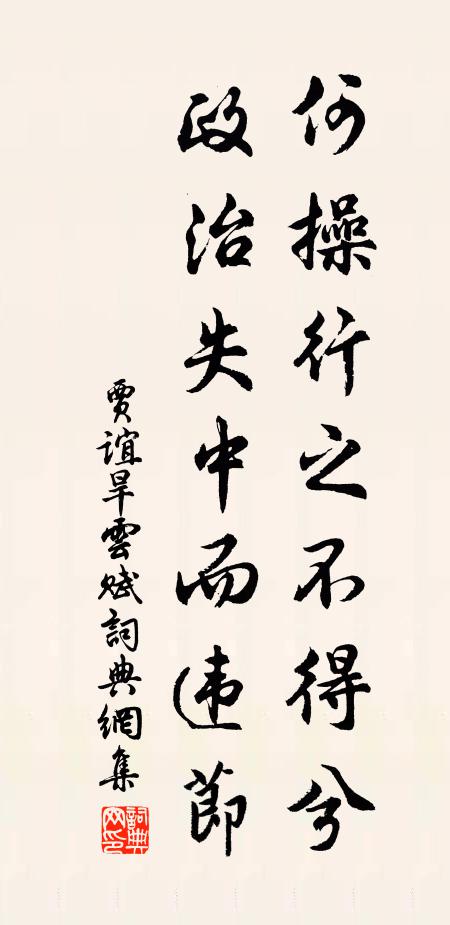 何操行之不得兮
政治失中而违節
賈誼旱雲赋詞典網集
詞典
网印